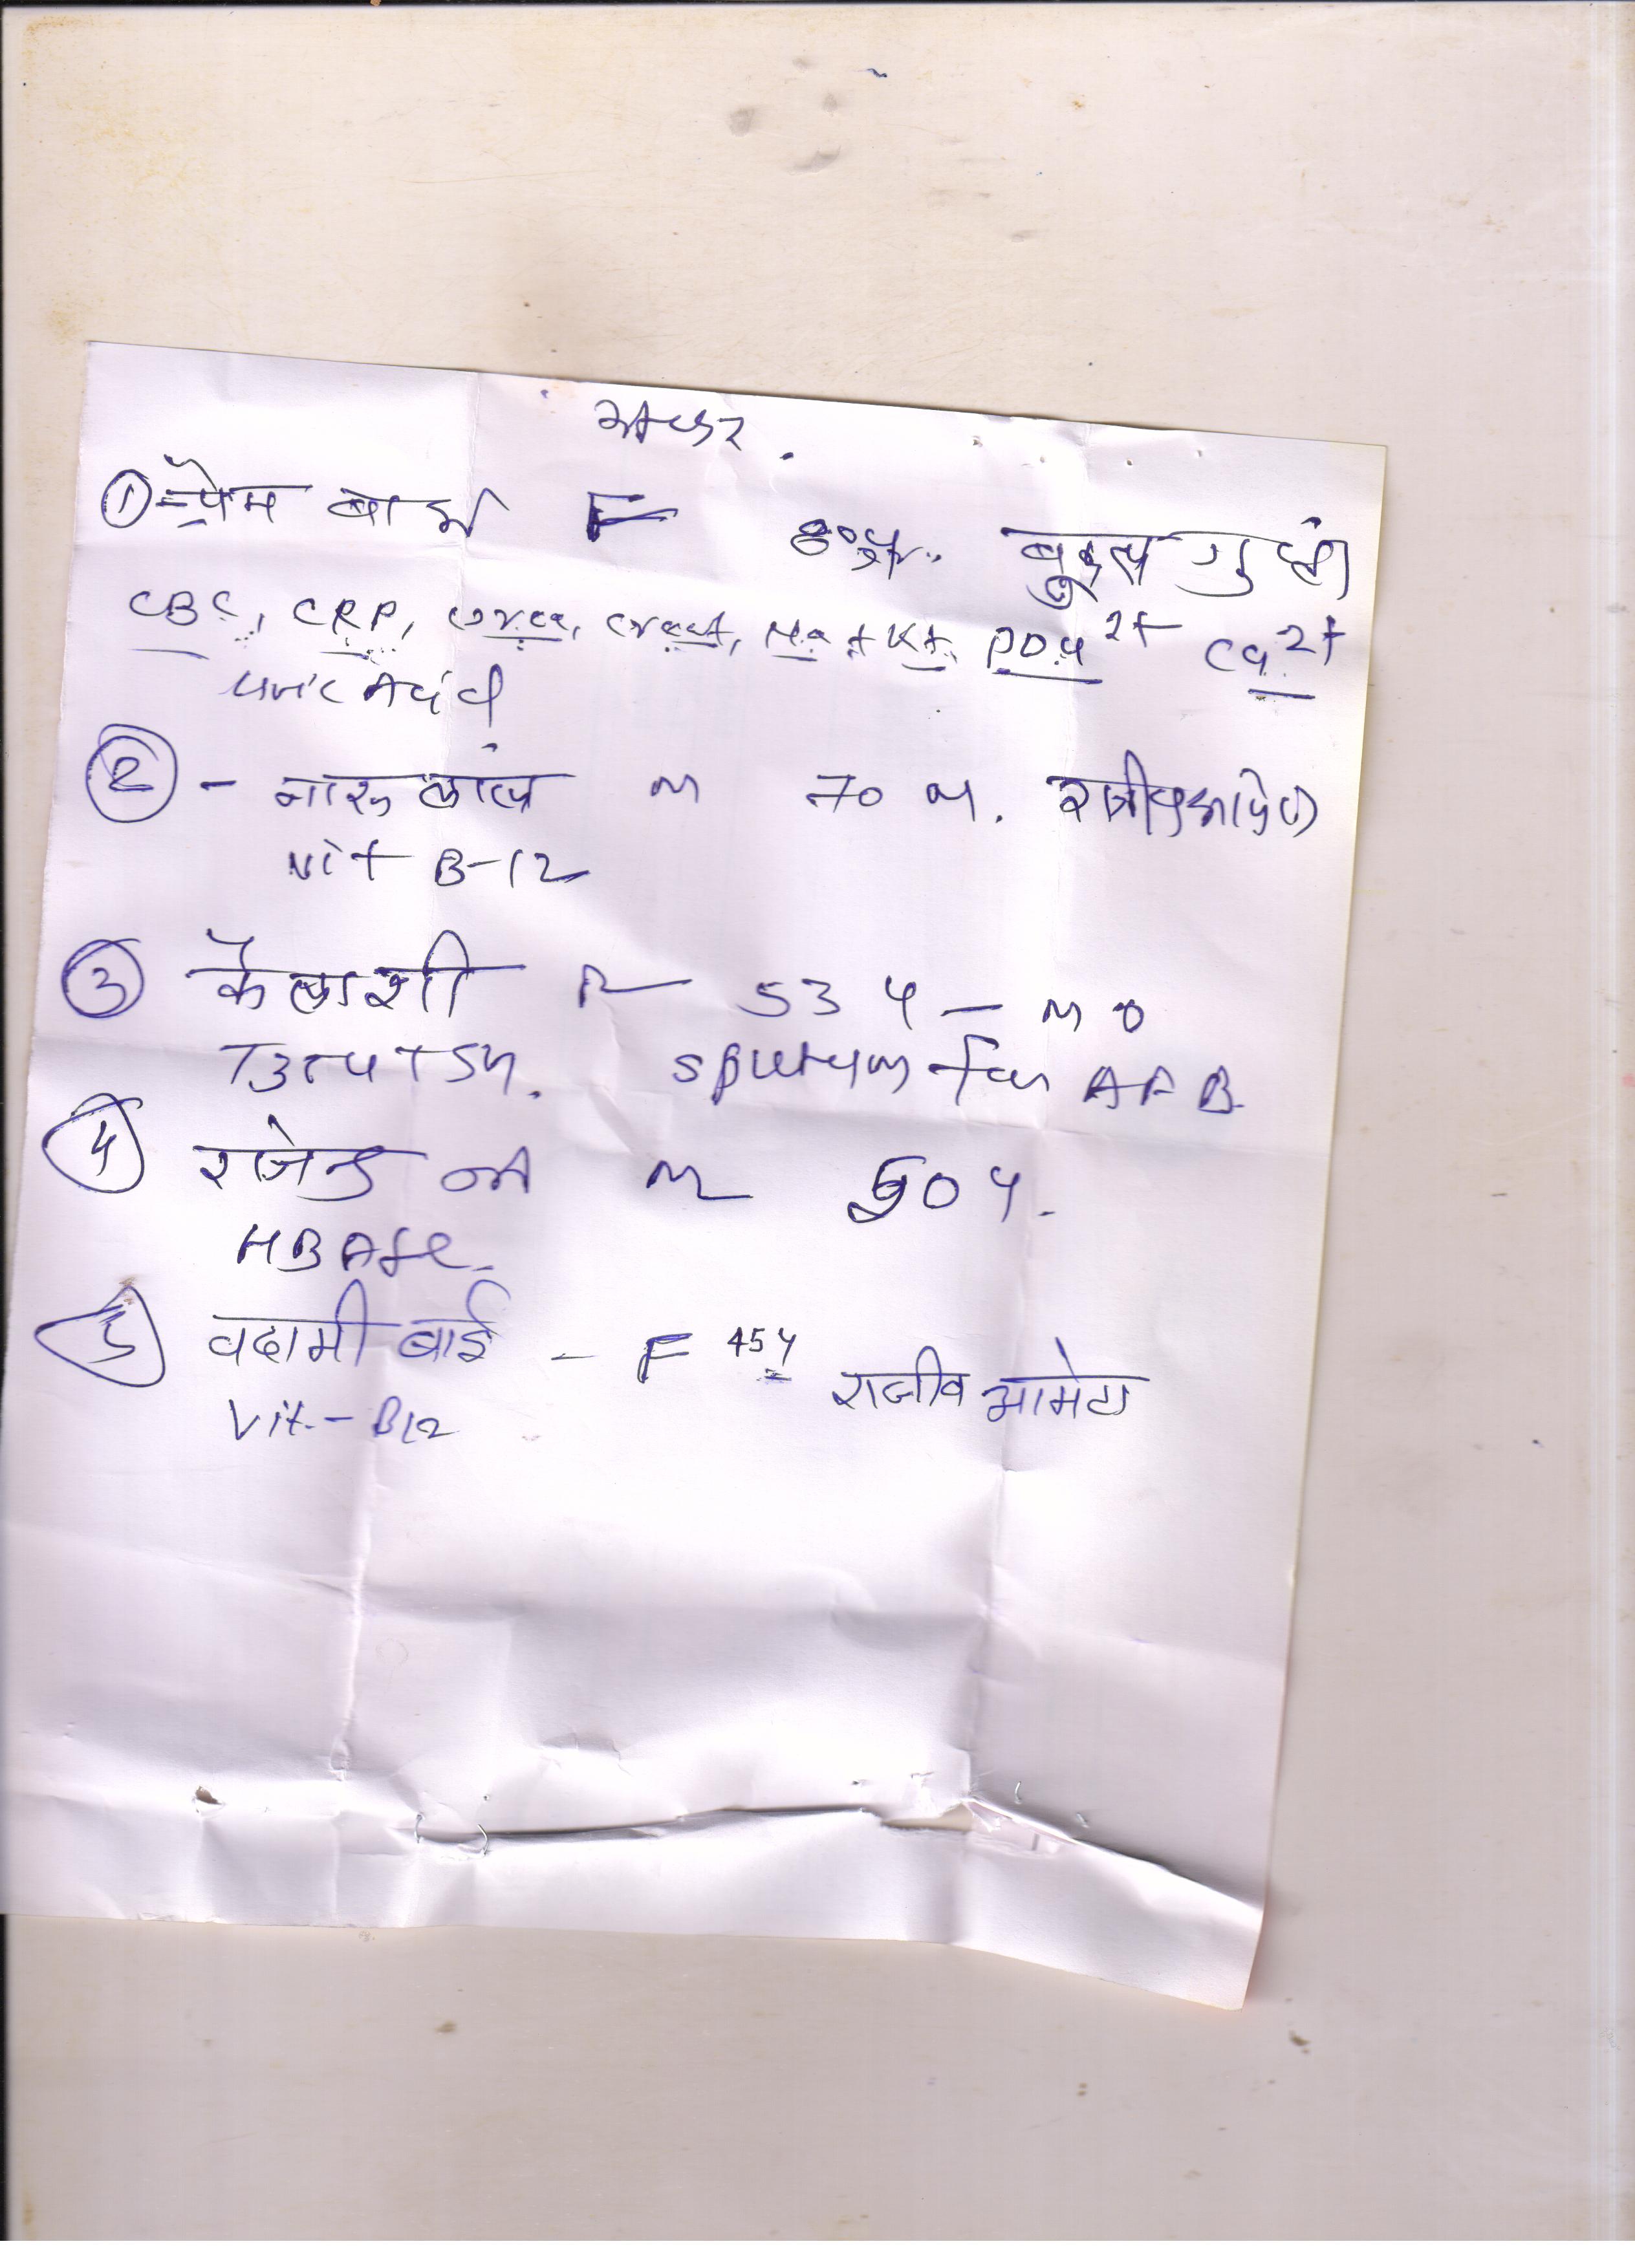 ① प्रेम बाई F 80y. गुप्ता
CBC, CRP, Urea, Creat, Na+ K+, PO4 2+ Ca 2+
Uric Acid
② - नारु लाल M 70 y.
Vit B-12
③ कैलाशी 53 y - MO
T3T4TSH. Sputum for AFB
④ राजेन्द्र जी M 50 y.
HBA1c.
5 वदामी बाई - F 45y
राजीव आमेटा
Vit.- B12